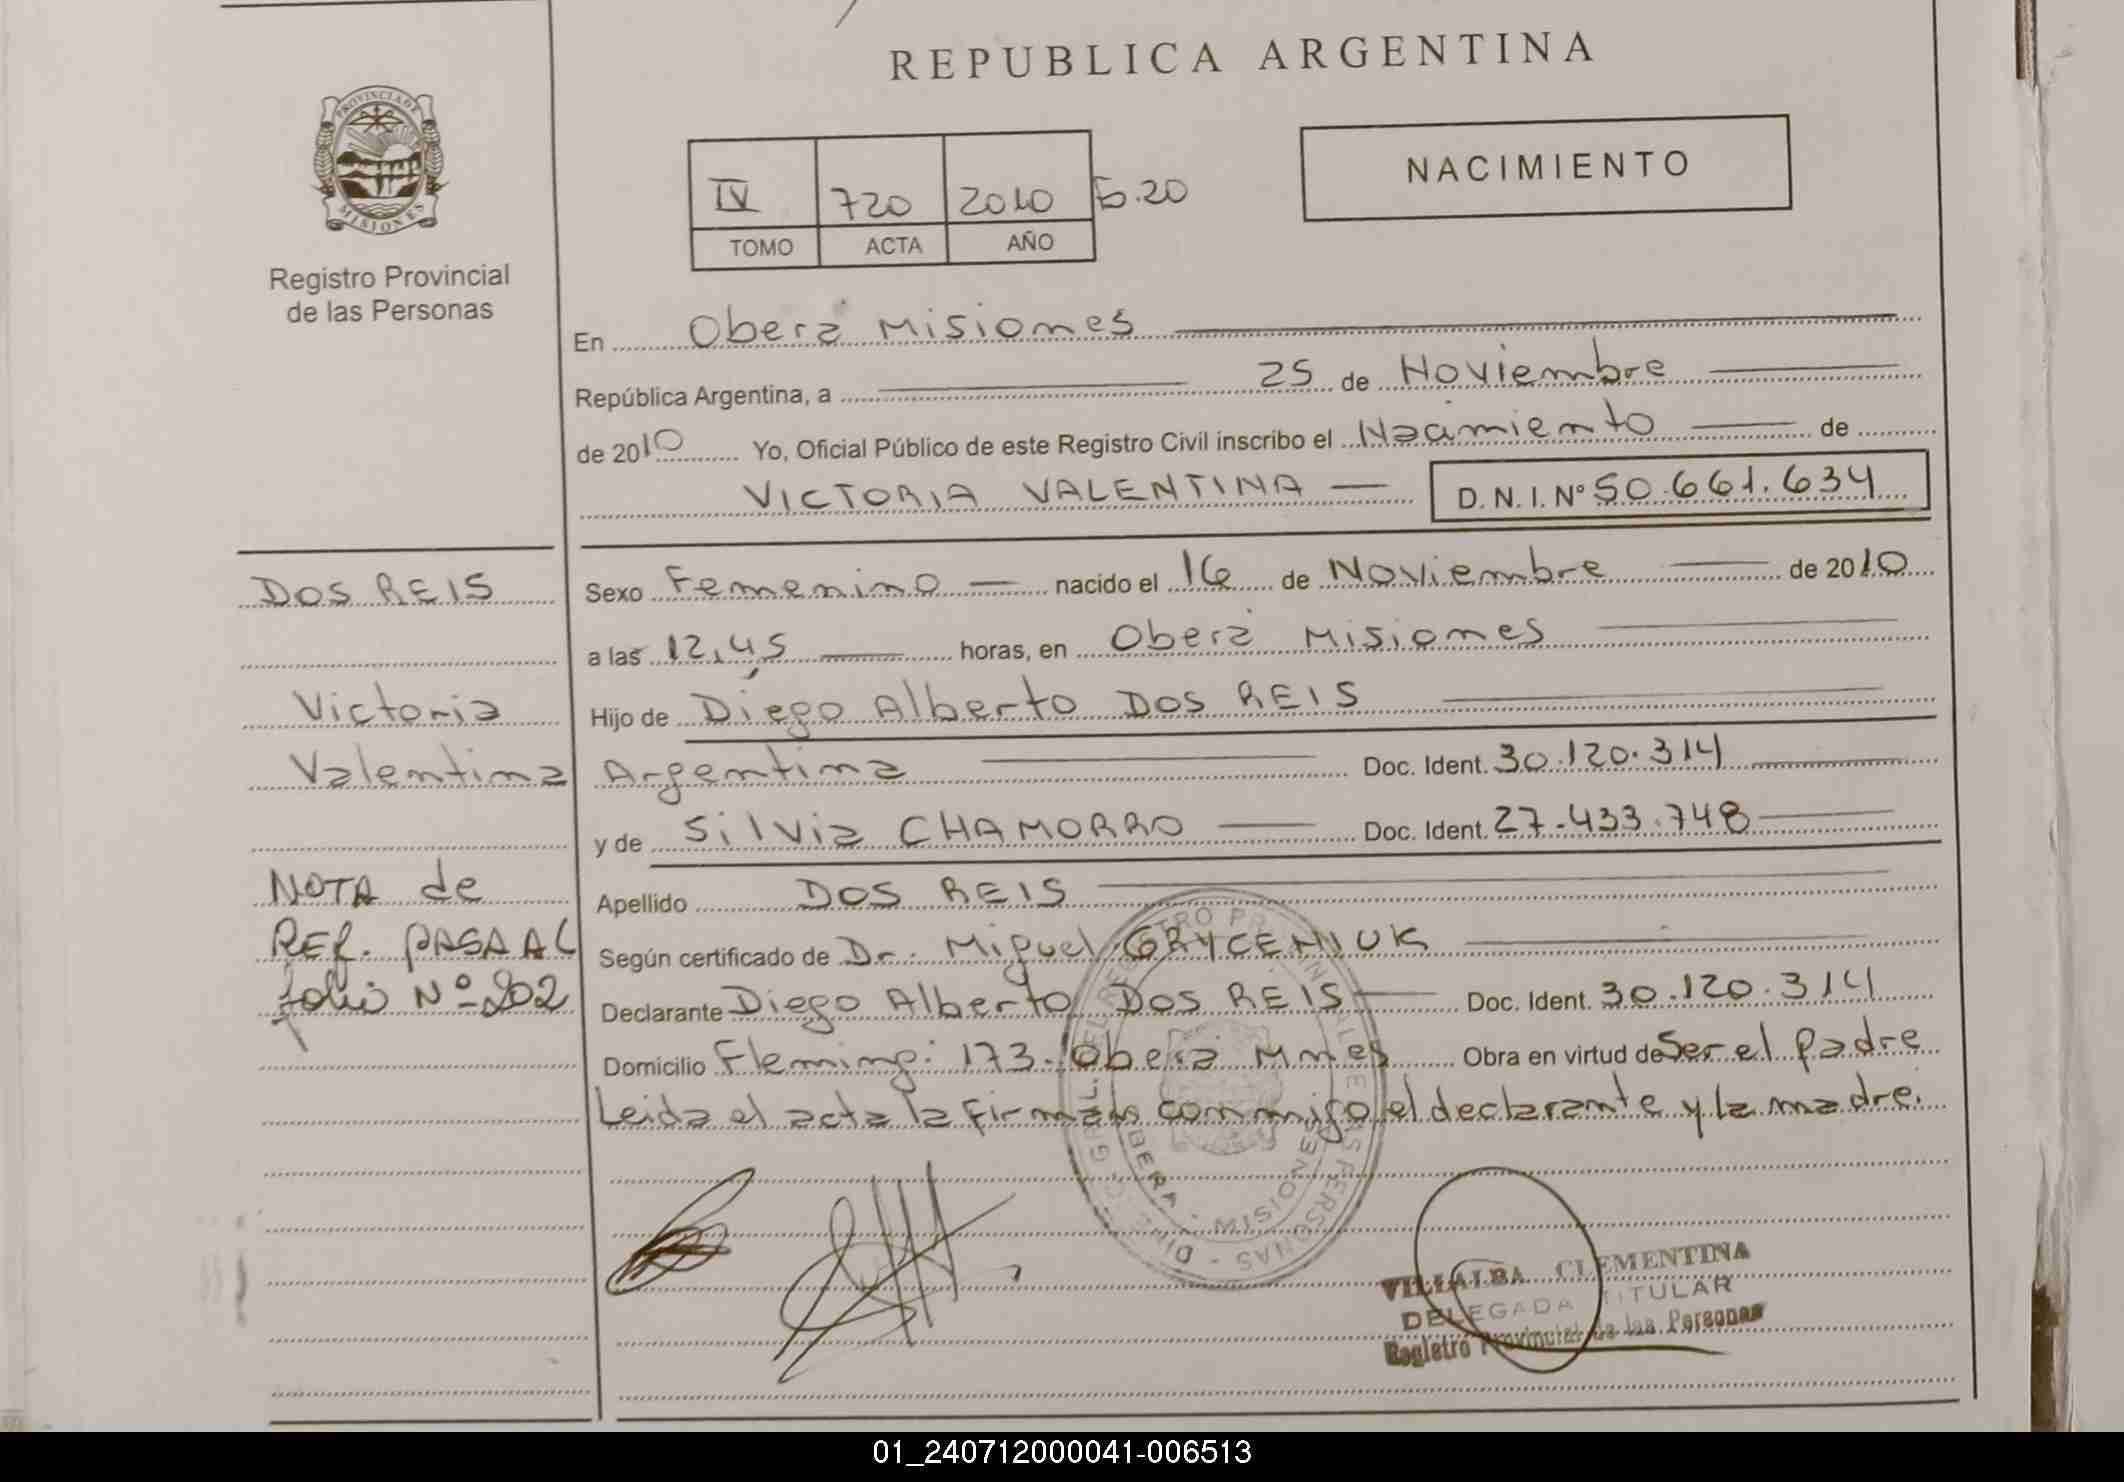 REPUBLICA ARGENTINA
PROVINCIA DE
MISIONES
Registro Provincial
de las Personas
NACIMIENTO
IV 720 2010 F.20
TOMO ACTA AÑO
En Oberá Misiones
República Argentina, a 25 de Noviembre
de 2010 Yo, Oficial Público de este Registro Civil inscribo el Nacimiento de
VICTORIA VALENTINA D.N.I.Nº 50.661.634
DOS REIS
Victoria
Valentina
NOTA de
REF. PASA AL
folio Nº 202
Sexo Femenino nacido el 16 de Noviembre de 2010
a las 12,45 horas, en Oberá Misiones
Hijo de Diego Alberto DOS REIS
Argentina Doc. Ident. 30.120.314
y de Silvia CHAMORRO Doc. Ident. 27.433.748
Apellido DOS REIS
Según certificado de Dr. Miguel GRYCENIUK
Declarante Diego Alberto DOS REIS Doc. Ident. 30.120.314
Domicilio Fleming: 173. Oberá Mnes Obra en virtud de Ser el padre
Leida el acta la firman conmigo el declarante y la madre.
VILLALBA CLEMENTINA
DELEGADA TITULAR
Registro Provincial de las Personas
01_240712000041-006513